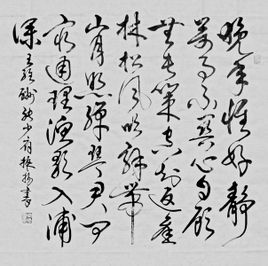 晚年惟好靜
萬事不關心自顧
無長策空知返舊
林松風吹解帶
山月照彈琴君問
窮通理漁歌入浦
深 王維 少府 書